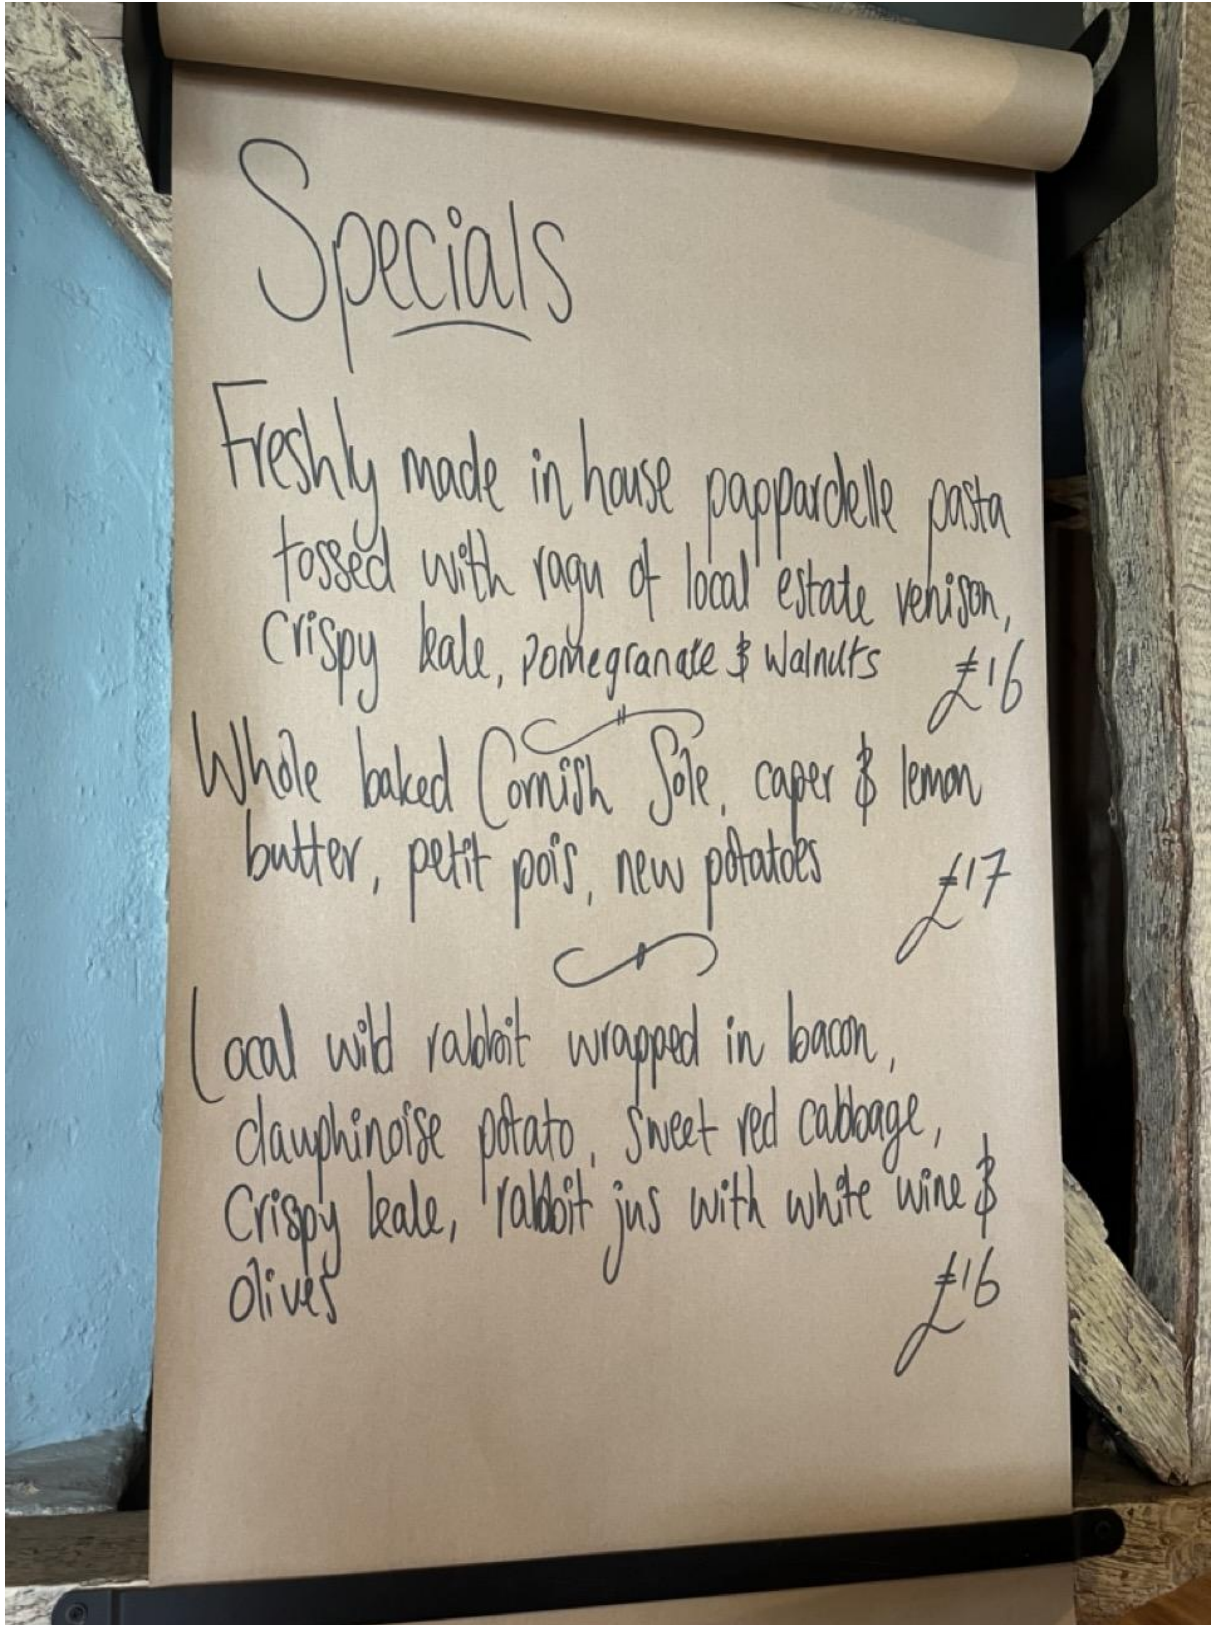 Specials
Freshly made in house pappardelle pasta
tossed with ragu of local estate venison,
crispy kale, pomegranate & walnuts £16
Whole baked Cornish Sole, caper & lemon
butter, petit pois, new potatoes £17
Local wild rabbit wrapped in bacon,
dauphinoise potato, sweet red cabbage,
crispy kale, rabbit jus with white wine &
olives £16